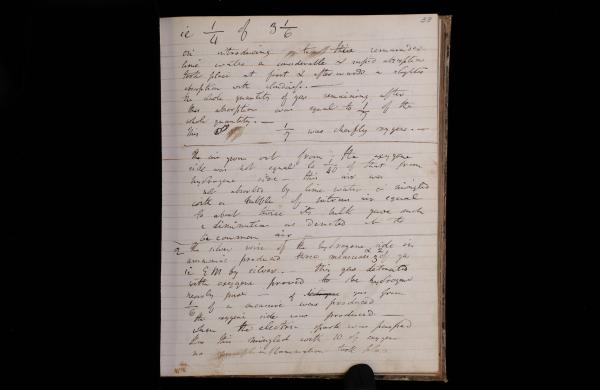 38
ie 1/4 of 3 1/6
on introducing to the remainder
lime water a considerable & rapid absorption
took place at first & afterwards a slighter
absorption with cloudiness. —
the whole quantity of gas remaining after
this absorption was equal to 1/7 of the
whole quantity. —
This 1/7 was chiefly oxygene. —
the air given out from the oxygene
side was not equal to 1/40 of that from
hydrogene side — this air was
not absorbed by lime water & mingled
with a bubble of nitrous air equal
to about twice its bulk gave such
a diminution as denoted it to
be common air —
2 the silver wire of the hydrogene side in
ammonia produced three measures of ga
ie by silver. — this gas detonated
with oxygene proved to be hydrogene
nearly pure —
1/6 of a measure of gas from
the oxygene side was produced —
when the electric spark was passed
thro this mingled with 10 of oxygene
no inflammation took place